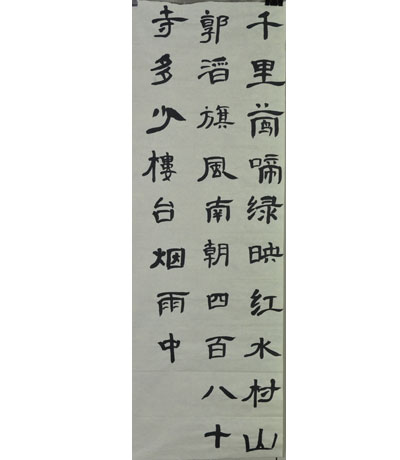 千里莺啼绿映红水村山
郭酒旗風南朝四百八十
寺多少樓台烟雨中